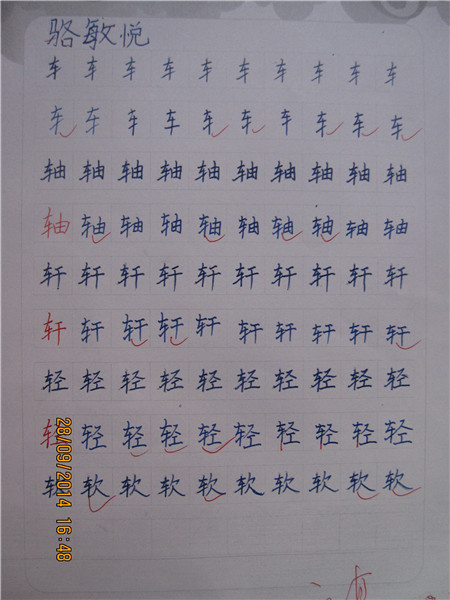 骆敏悦
车 车 车 车 车 车 车 车 车 车
车 车 车 车 车 车 车 车 车 车
轴 轴 轴 轴 轴 轴 轴 轴 轴 轴
轴 轴 轴 轴 轴 轴 轴 轴 轴 轴
轩 轩 轩 轩 轩 轩 轩 轩 轩 轩
轩 轩 轩 轩 轩 轩 轩 轩 轩 轩
轻 轻 轻 轻 轻 轻 轻 轻 轻 轻
轻 轻 轻 轻 轻 轻 轻 轻 轻 轻
软 软 软 软 软 软 软 软 软 软
28/09/2014 16:48